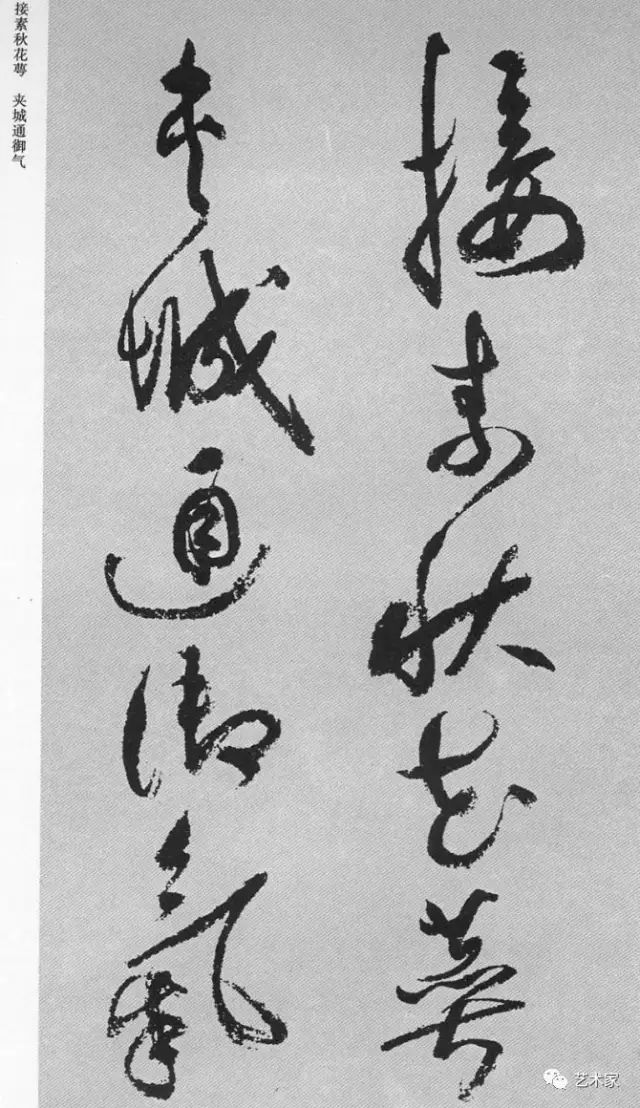 接素秋花萼
夾城通御氣
接素秋花萼 夹城通御气
艺术家